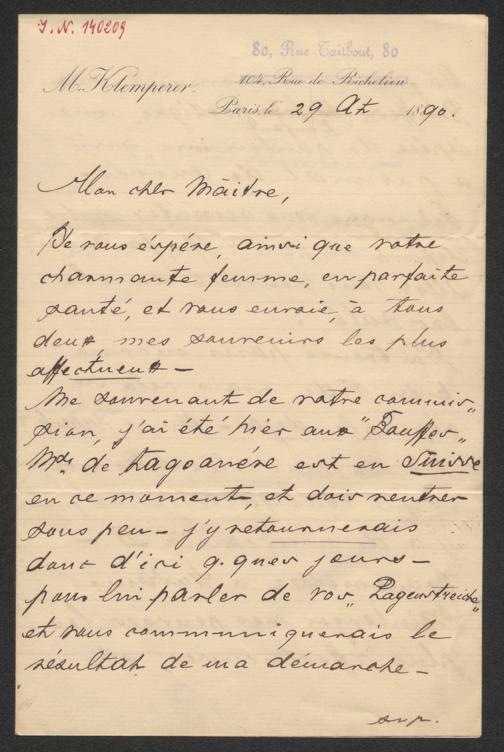 I. N. 140209
80, Rue Taitbout, 80
M. Klemperer.
104, Rue de Richelieu
Paris, le 29 Oct 1890.
Mon cher Maître,
Je vous éspére, ainsi que votre
charmante femme, en parfaite
santé, et vous envoie, à tous
deux, mes souvenirs les plus
affectueux –
Me souvenant de votre commis„
sion, j'ai été hier aux "Bouffes„
de Lagoanére est en Suisse
en ce moment, et dois rentrer
sous peu – j'y retournerais
donc d'ici q. ques jours –
pour lui parler de vos „Pagenstreiche"
et vous communiquerais le
résultat de ma démarche –
svp.